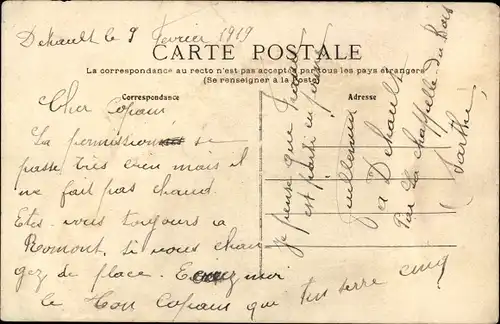 Dehault le 9 Février 1919
CARTE POSTALE
La correspondance au recto n'est pas acceptée par tous les pays étrangers
(Se renseigner à la Poste)
Correspondance
Adresse
Cher Copain
La permission se
passe très bien mais il
ne fait pas chaud.
Etes-vous toujours a
Romont, si vous chan
gez de place. Ecrivez moi
le Mon Copain qui ten serre cinq
Je pense que
est parti en perme
Guillemin
a Dehault
Par La Chappelle du Bois
Sarthe